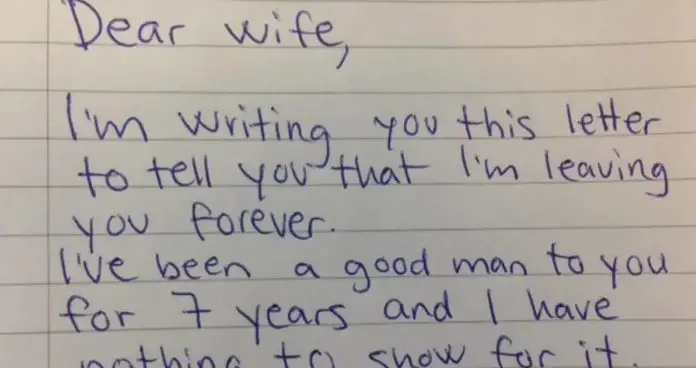 Dear wife,
I'm writing you this letter
to tell you that I'm leaving
you forever.
I've been a good man to you
for 7 years and I have
nothing to show for it.